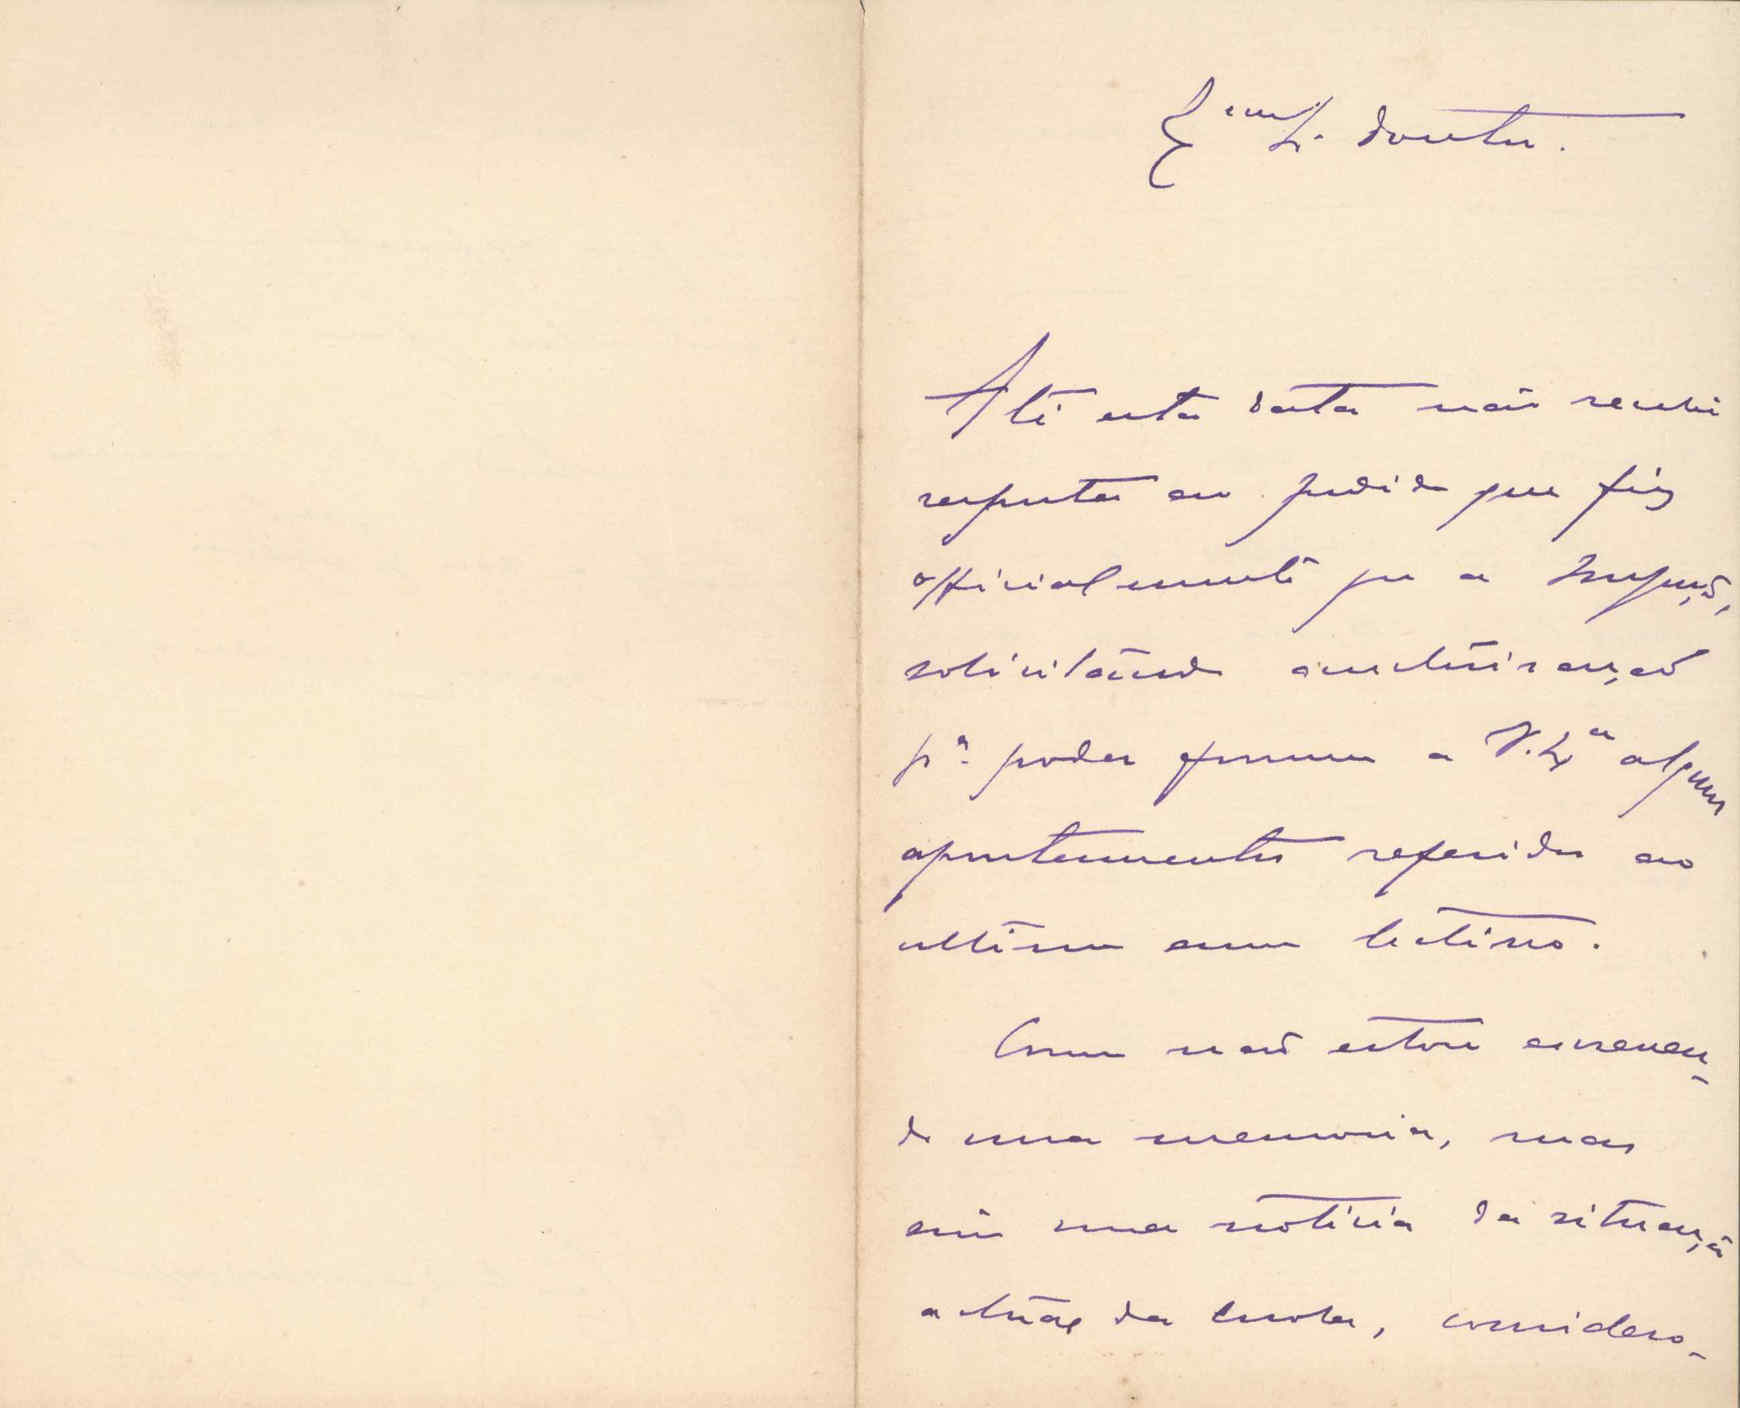 Exmo Sr. Doutor.
Até esta data não recebi
resposta ao pedido que fiz
officialmente pa a Inspecção,
solicitando auctorisação
pa. poder fornecer a V. Exa alguns
apontamentos referidos ao
ultimo anno lectivo.
Como não estou escreven-
do uma memoria, mas
sim uma noticia da situação
actual da Escola, considero-